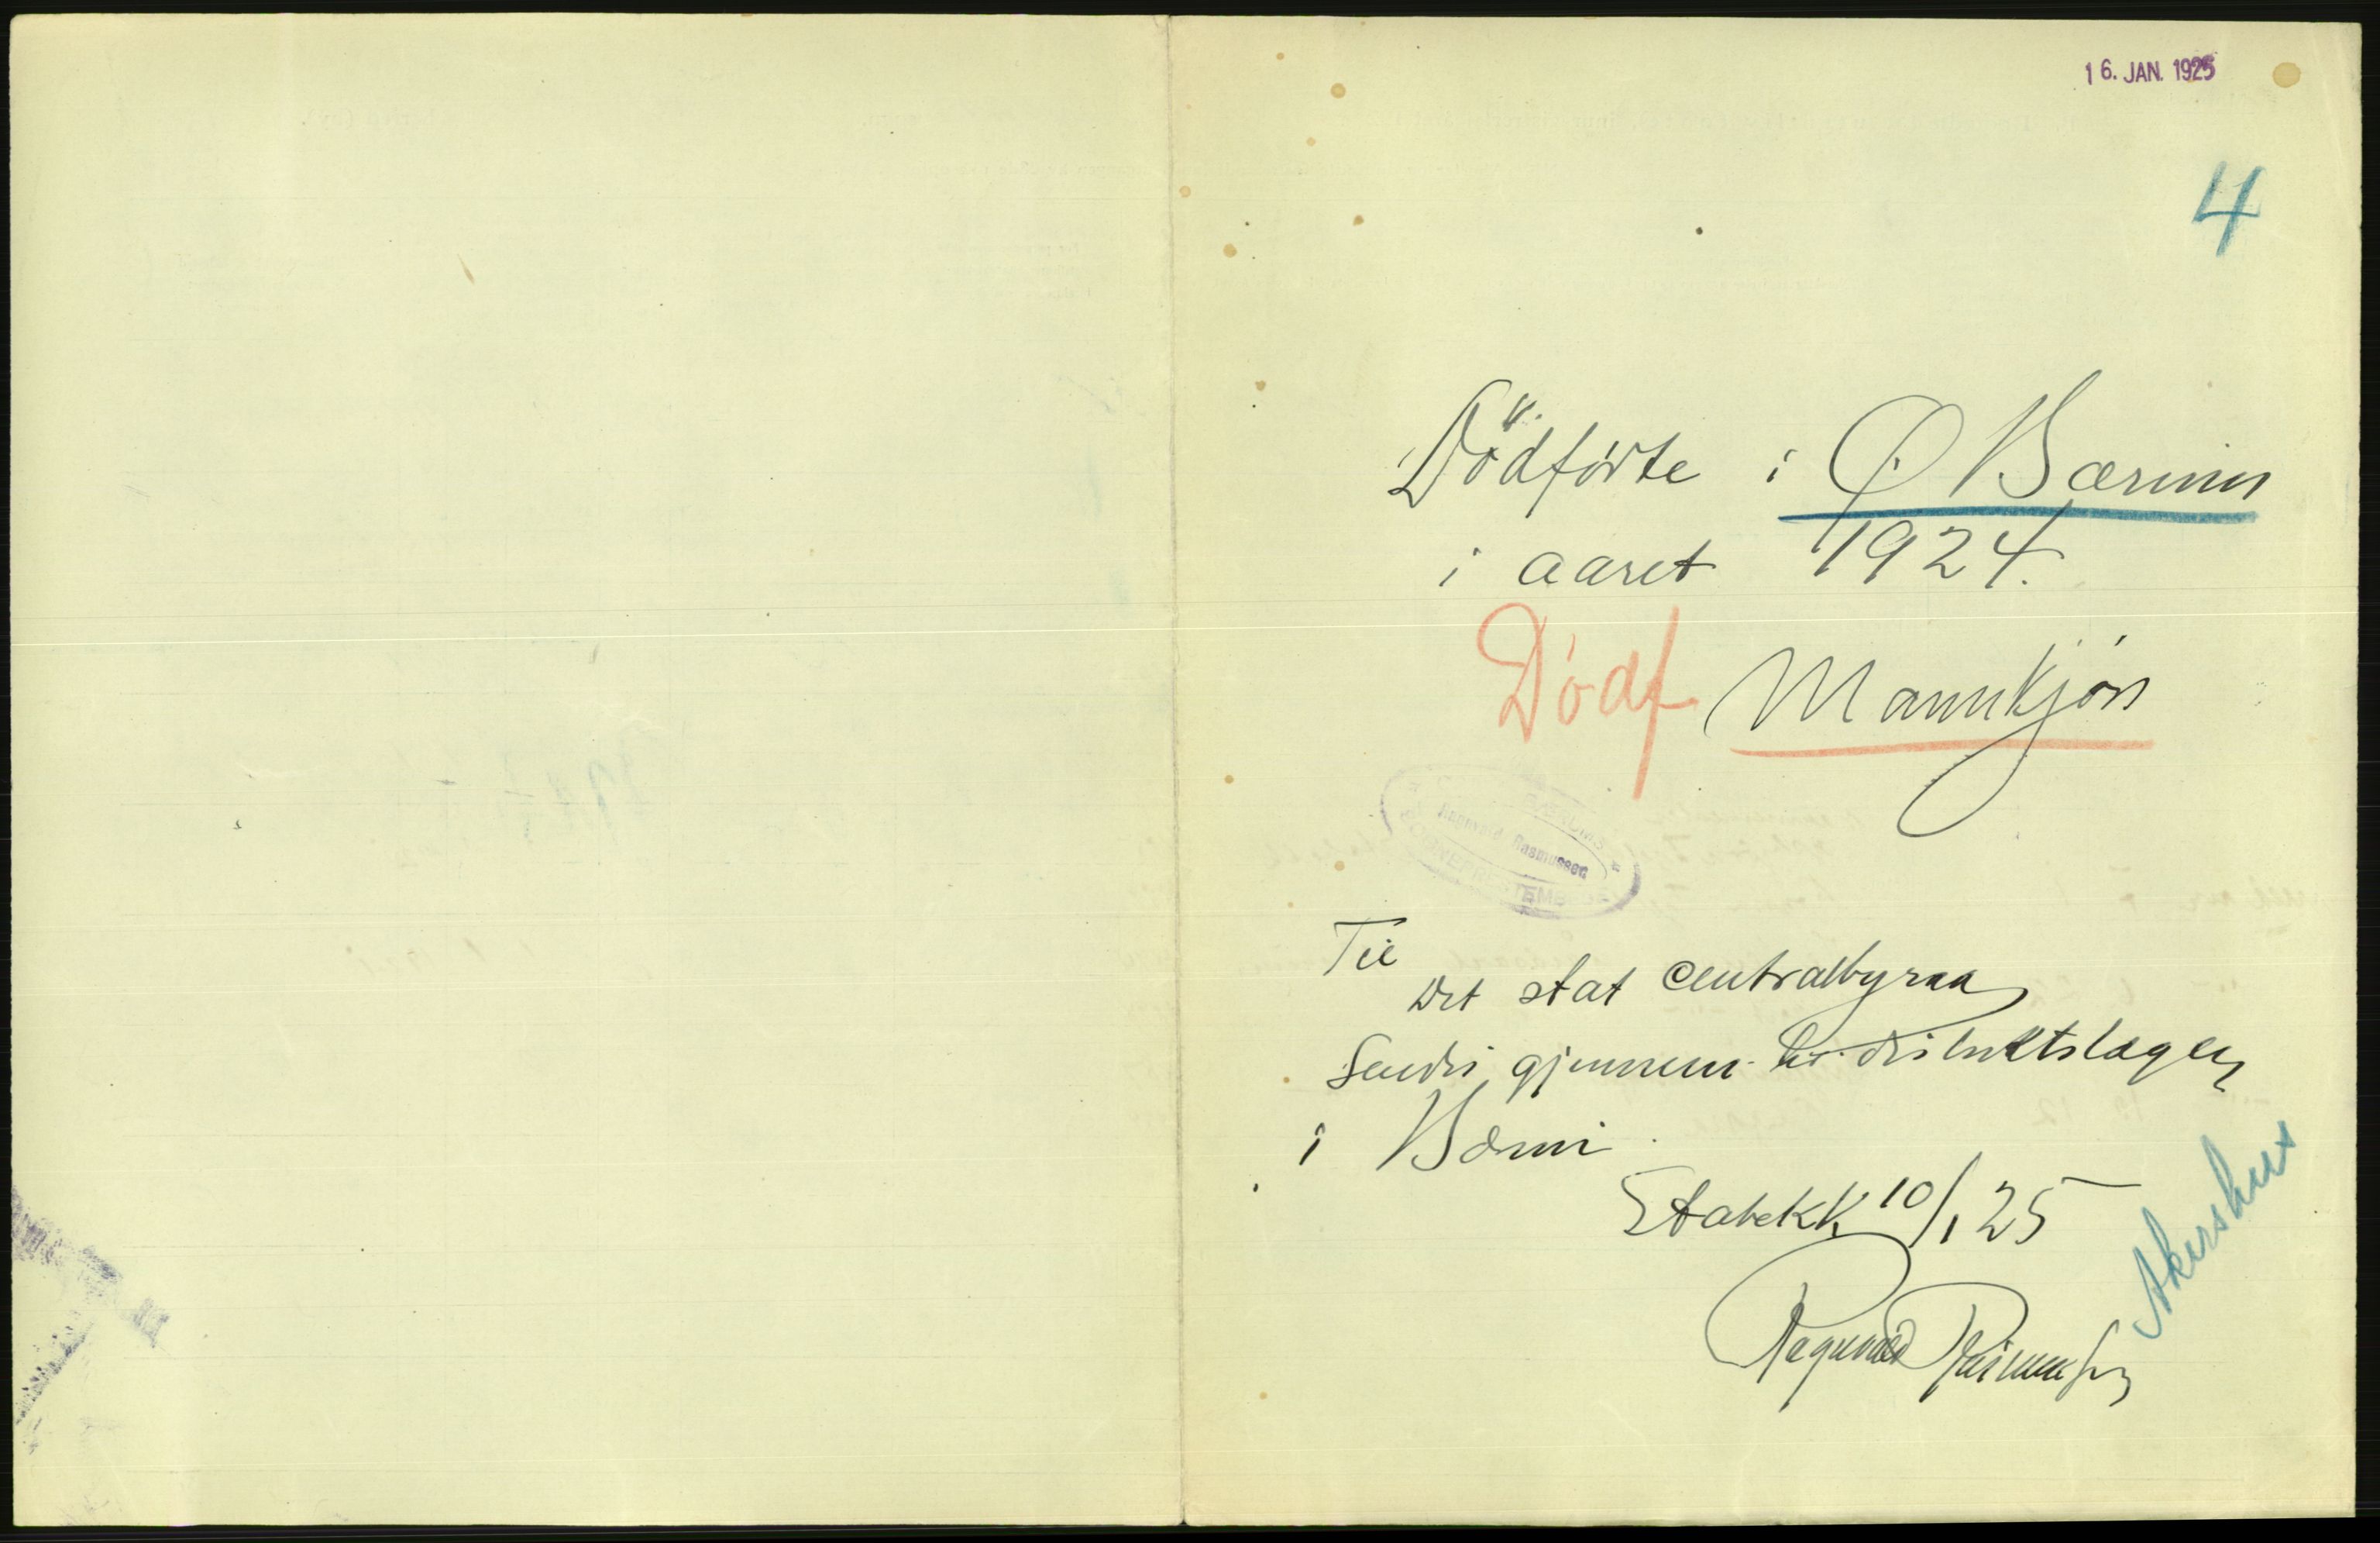 16. JAN. 1925
4
Dödførte i Ø Bærum
i aaret 1924.
Dødf Mannkjøn
BÆRUMS
Ragnvald Rasmussen
Til
Det stat centralbyraa
Sendes gjennem hr. distriktslægen
i Bærum
Stabekk 10/1 25
Ragnvald Rasmussen
Akershus